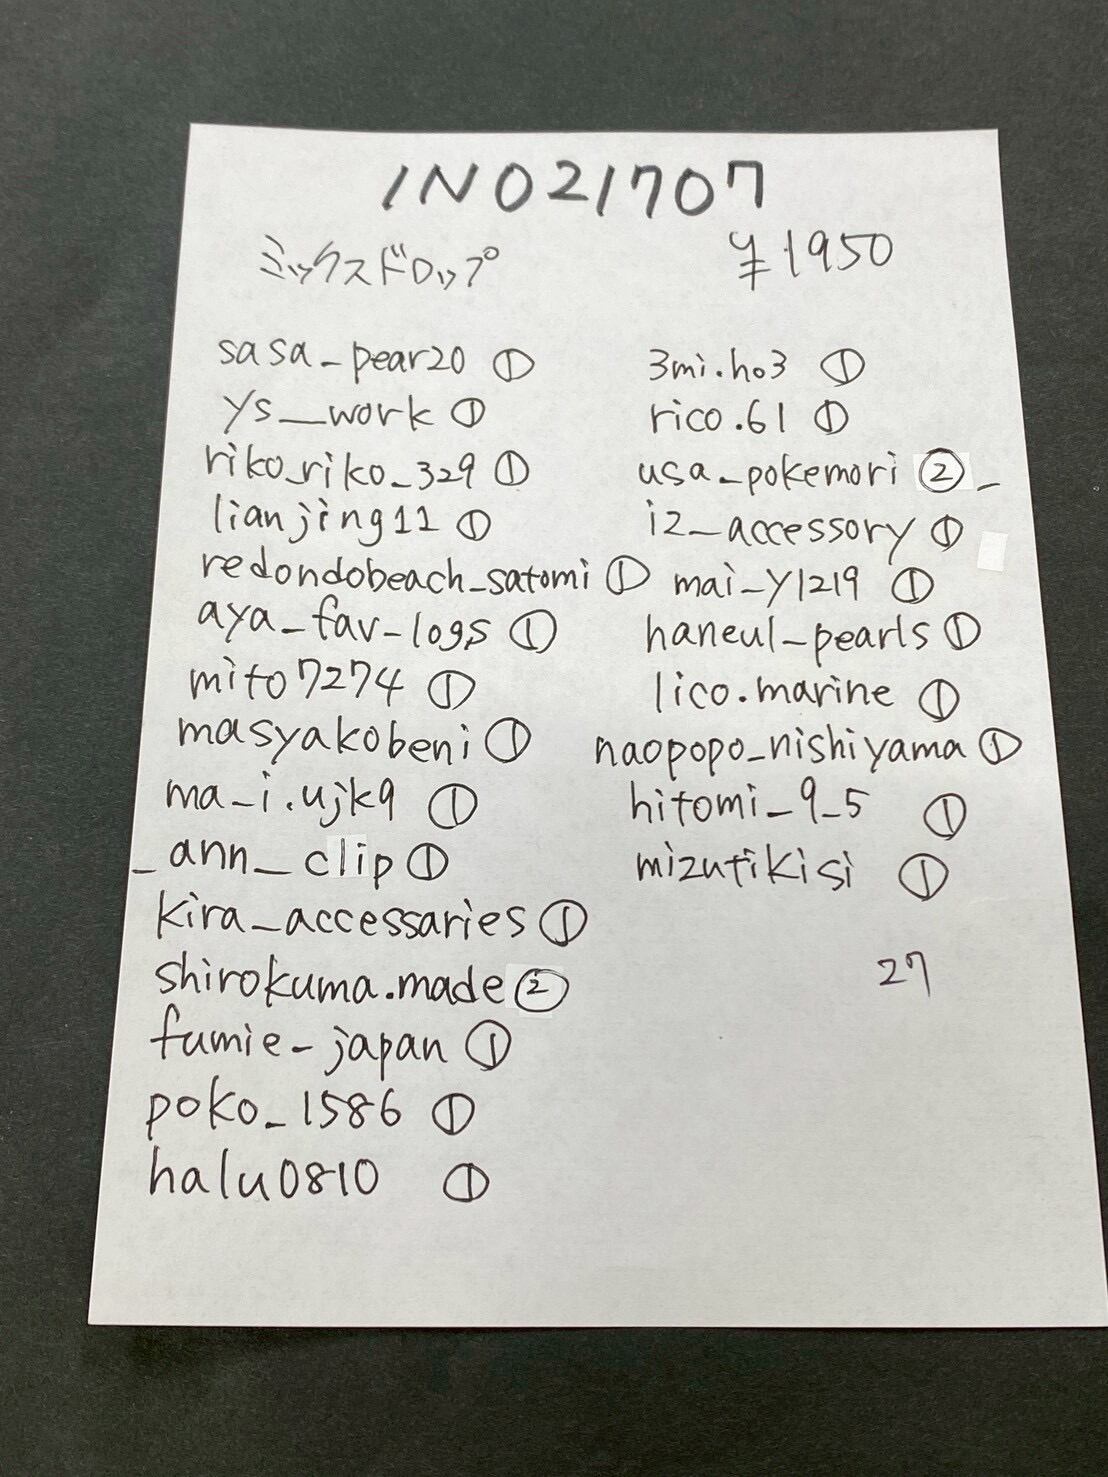 INO21707
ミックスドロップ
¥1950
sasa_pear20 ①
ys__work ①
riko_riko_329 ①
lianjing11 ①
redondobeach_satomi ①
aya_fav_logs ①
mito7274 ①
masyakobeni ①
ma_i.ujk9 ①
_ann_clip ①
kira_accessaries ①
shirokuma.made ②
fumie_japan ①
poko_1586 ①
halu0810 ①
3mi.ho3 ①
rico.61 ①
usa_pokemori ② _
iz_accessory ①
mai_y1219 ①
haneul_pearls ①
lico.marine ①
naopopo_nishiyama ①
hitomi_9_5 ①
mizutikisi ①
27